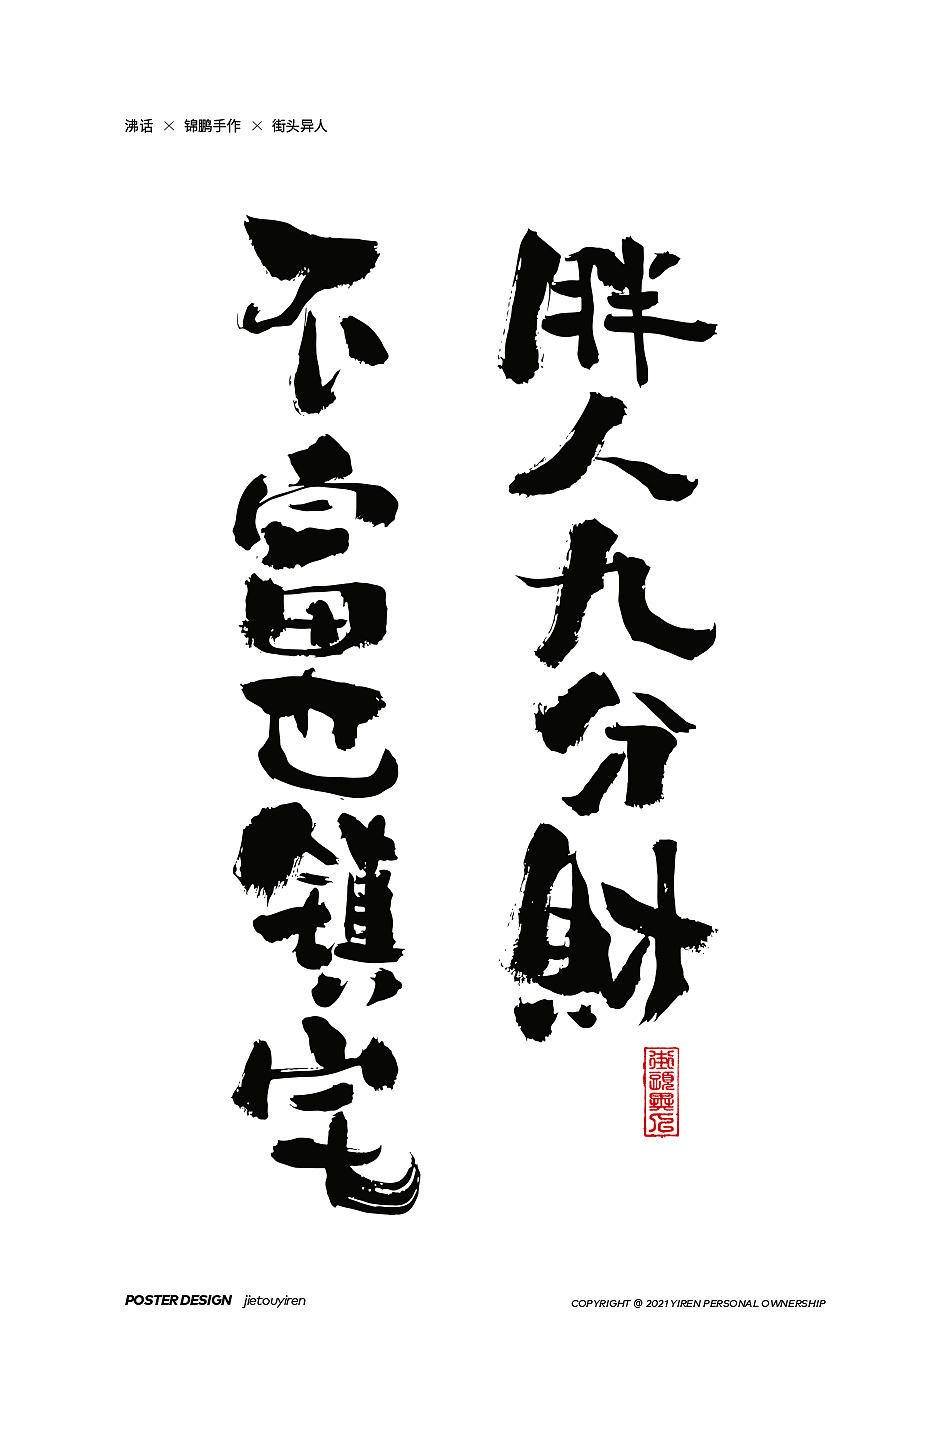 沸话 × 锦鹏手作 × 街头异人
胖人九分財
不富也鎮宅
街頭異人
POSTER DESIGN jietouyiren
COPYRIGHT @ 2021 YIREN PERSONAL OWNERSHIP